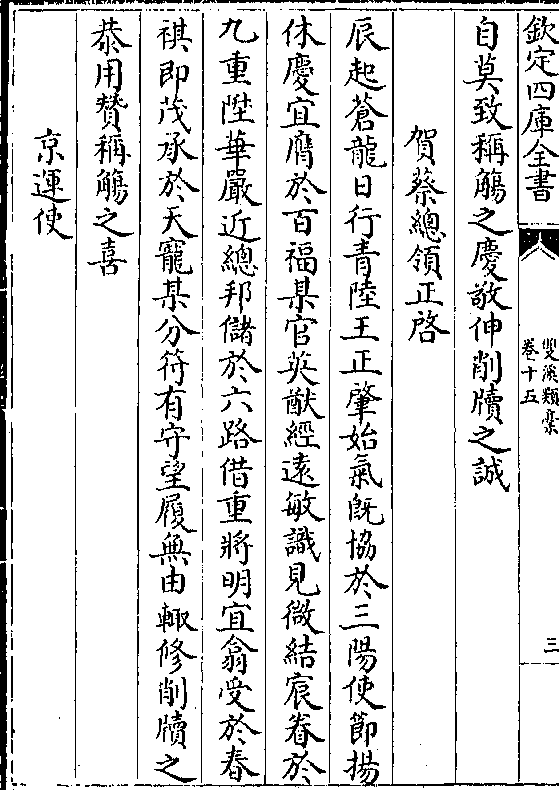 欽定四庫全書
雙溪類稾
卷十五
三
自莫致稱觴之慶敬伸削牘之誠
賀蔡總領正啓
辰起蒼龍日行青陸王正肇始氣既協於三陽使節揚
休慶宜膺於百福某官英猷經遠敏識見微結宸眷於
九重陛華嚴近總邦儲於六路借重將明宜翕受於春
祺即茂承於天寵某分符有守望履無由輙修削牘之
恭用贊稱觴之喜
京運使